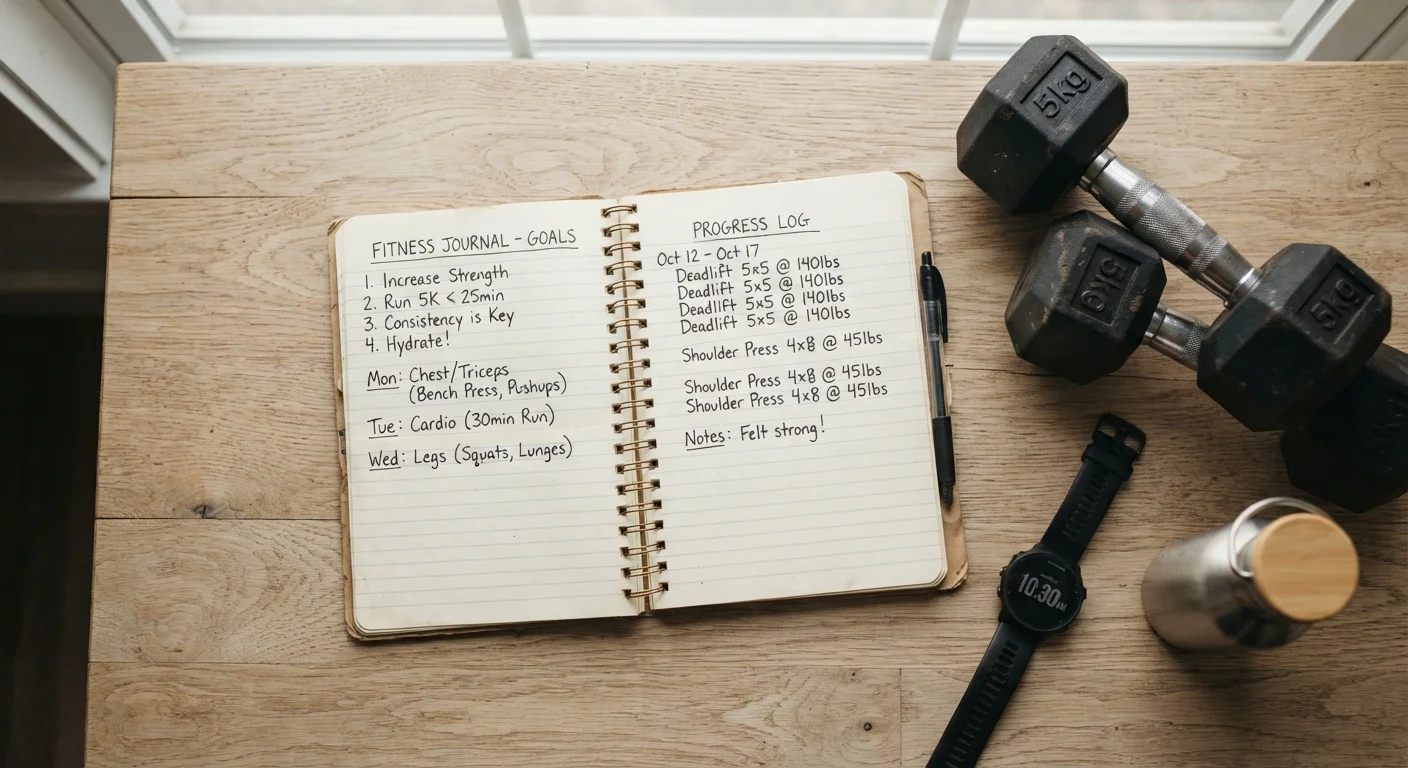 FITNESS JOURNAL - GOALS
1. Increase Strength
2. Run 5K < 25min
3. Consistency is Key
4. Hydrate!
Mon: Chest/Triceps
(Bench Press, Pushups)
Tue: Cardio (30min Run)
Wed: Legs (Squats, Lunges)
PROGRESS LOG
Oct 12 - Oct 17
Deadlift 5x5 @ 140lbs
Deadlift 5x5 @ 140lbs
Deadlift 5x5 @ 140lbs
Deadlift 5x5 @ 140lbs
Shoulder Press 4x8 @ 45lbs
Shoulder Press 4x8 @ 45lbs
Shoulder Press 4x8 @ 45lbs
Notes: Felt strong!
5kg
5kg
5kg
10:30AM